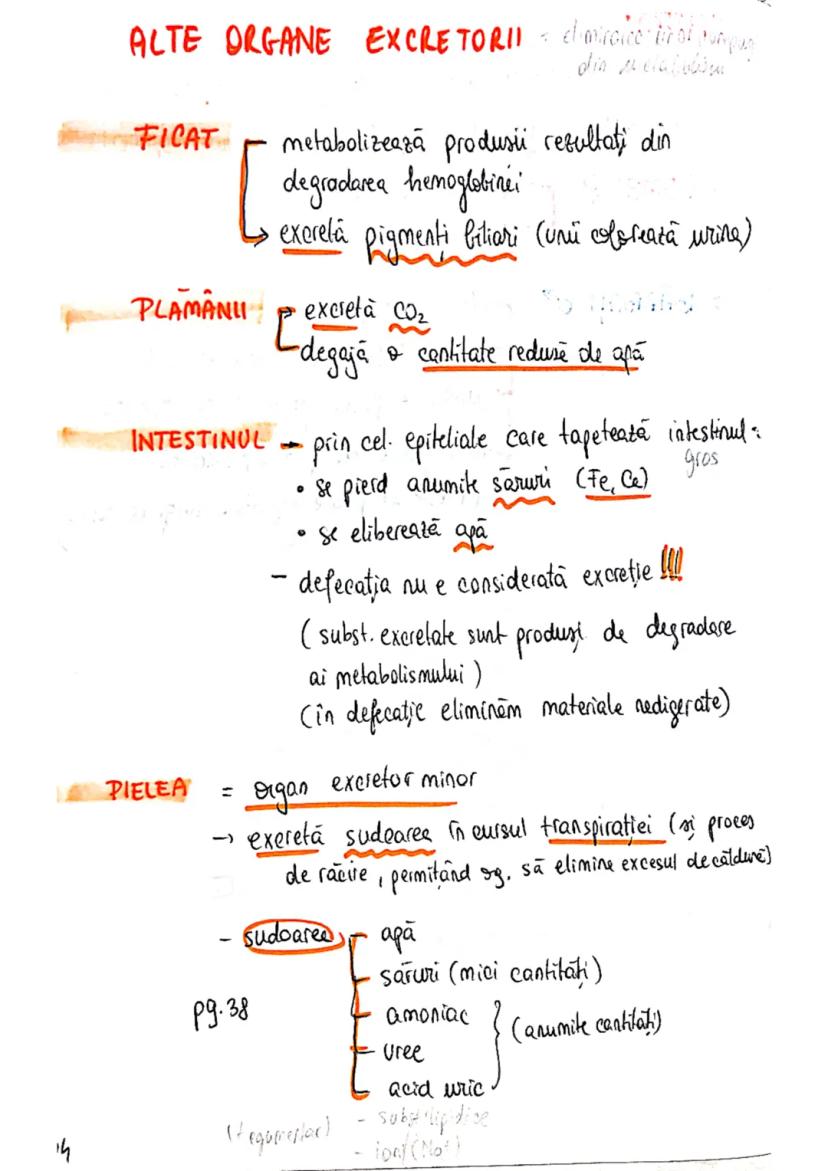 ALTE ORGANE EXCRETORII =
din metabolism
FICAT
metabolizează produsii rezultați din
degradarea hemoglobinei
→ excretă pigmenți biliari (unii colorează urina)
PLĂMÂNII
→ excretă CO₂
degajă o cantitate redusă de apă
INTESTINUL → prin cel. epiteliale care tapetează intestinul:
gros
• se pierd anumite săruri (Fe, Ca)
• se eliberează apă
- defecația nu e considerată excreție !!!
(subst. excretate sunt produși de degradare
ai metabolismului)
(în defecație eliminăm materiale nedigerate)
PIELEA = organ excretor minor
→ excretă sudoarea în cursul transpirației (și proces
de răcire, permițând og. să elimine excesul de căldură)
- sudoarea
apă
săruri (mici cantități)
amoniac
uree
acid uric
(anumite cantități)
pg. 38
- subst lipidice
(tegumentar)
- ioni
14